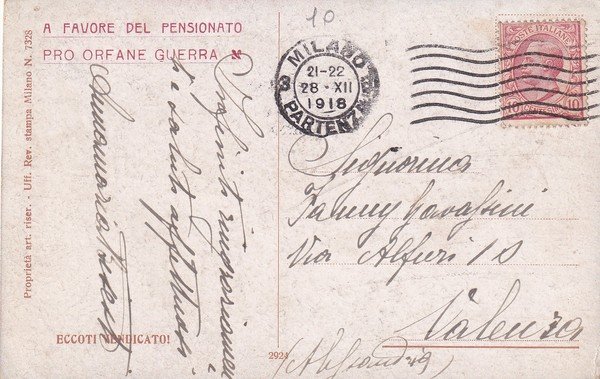 10
A FAVORE DEL PENSIONATO
PRO ORFANE GUERRA
Proprietà art. riser. - Uff. Rev. stampa Milano N. 7328
Infiniti ringraziamenti
e saluti affettuosi
Annamaria
ECCOTI VENDICATO!
2924
MILANO
21-22
28·XII
1918
PARTENZA
POSTE ITALIANE
10 10
Signorina
Fanny Gavassini
Via Alfieri 18
Valenza
(Alessandria)